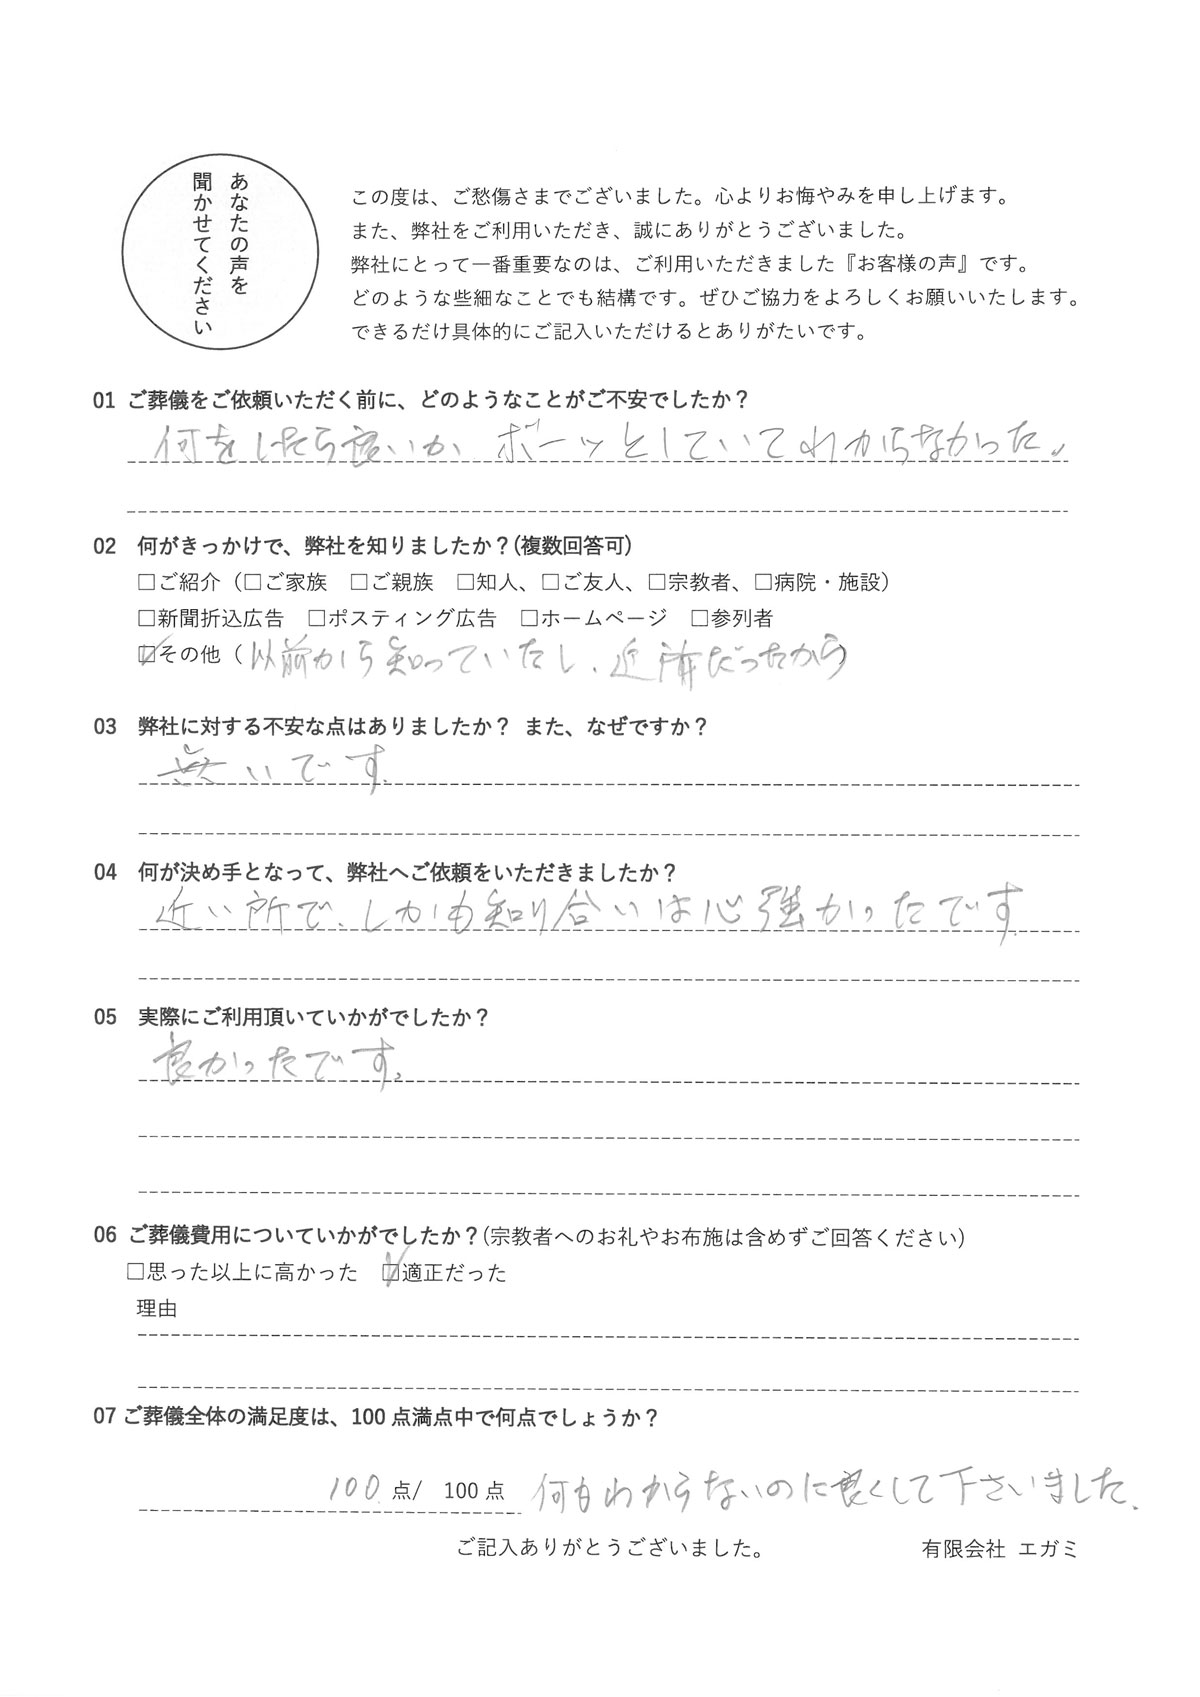 あなたの声を
聞かせてください
この度は、ご愁傷さまでございました。心よりお悔やみを申し上げます。
また、弊社をご利用いただき、誠にありがとうございました。
弊社にとって一番重要なのは、ご利用いただきました『お客様の声』です。
どのような些細なことでも結構です。ぜひご協力をよろしくお願いいたします。
できるだけ具体的にご記入いただけるとありがたいです。
01 ご葬儀をご依頼いただく前に、どのようなことがご不安でしたか？
何をしたら良いか ボーッとしていてわからなかった。
02 何がきっかけで、弊社を知りましたか？(複数回答可)
□ご紹介（□ご家族 □ご親族 □知人、□ご友人、□宗教者、□病院・施設）
□新聞折込広告 □ポスティング広告 □ホームページ □参列者
☑その他（以前から知っていたし、近所だったから
03 弊社に対する不安な点はありましたか？ また、なぜですか？
無いです.
04 何が決め手となって、弊社へご依頼をいただきましたか？
近い所で、しかも知り合いは心強かったです.
05 実際にご利用頂いていかがでしたか？
良かったです。
06 ご葬儀費用についていかがでしたか？(宗教者へのお礼やお布施は含めずご回答ください)
□思った以上に高かった ☑適正だった
理由
07 ご葬儀全体の満足度は、100 点満点中で何点でしょうか？
100 点/ 100 点 何もわからないのに良くして下さいました.
ご記入ありがとうございました。 有限会社 エガミ